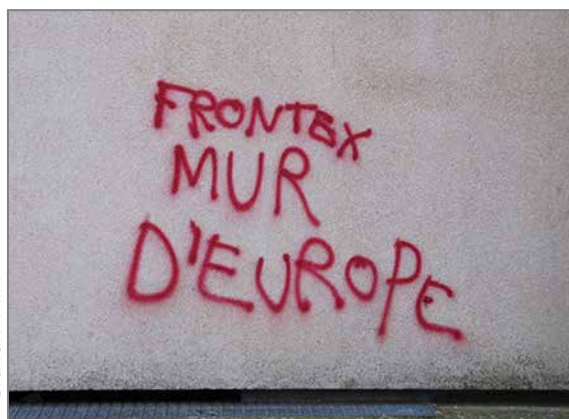 FRONTEX
MUR
D'EUROPE